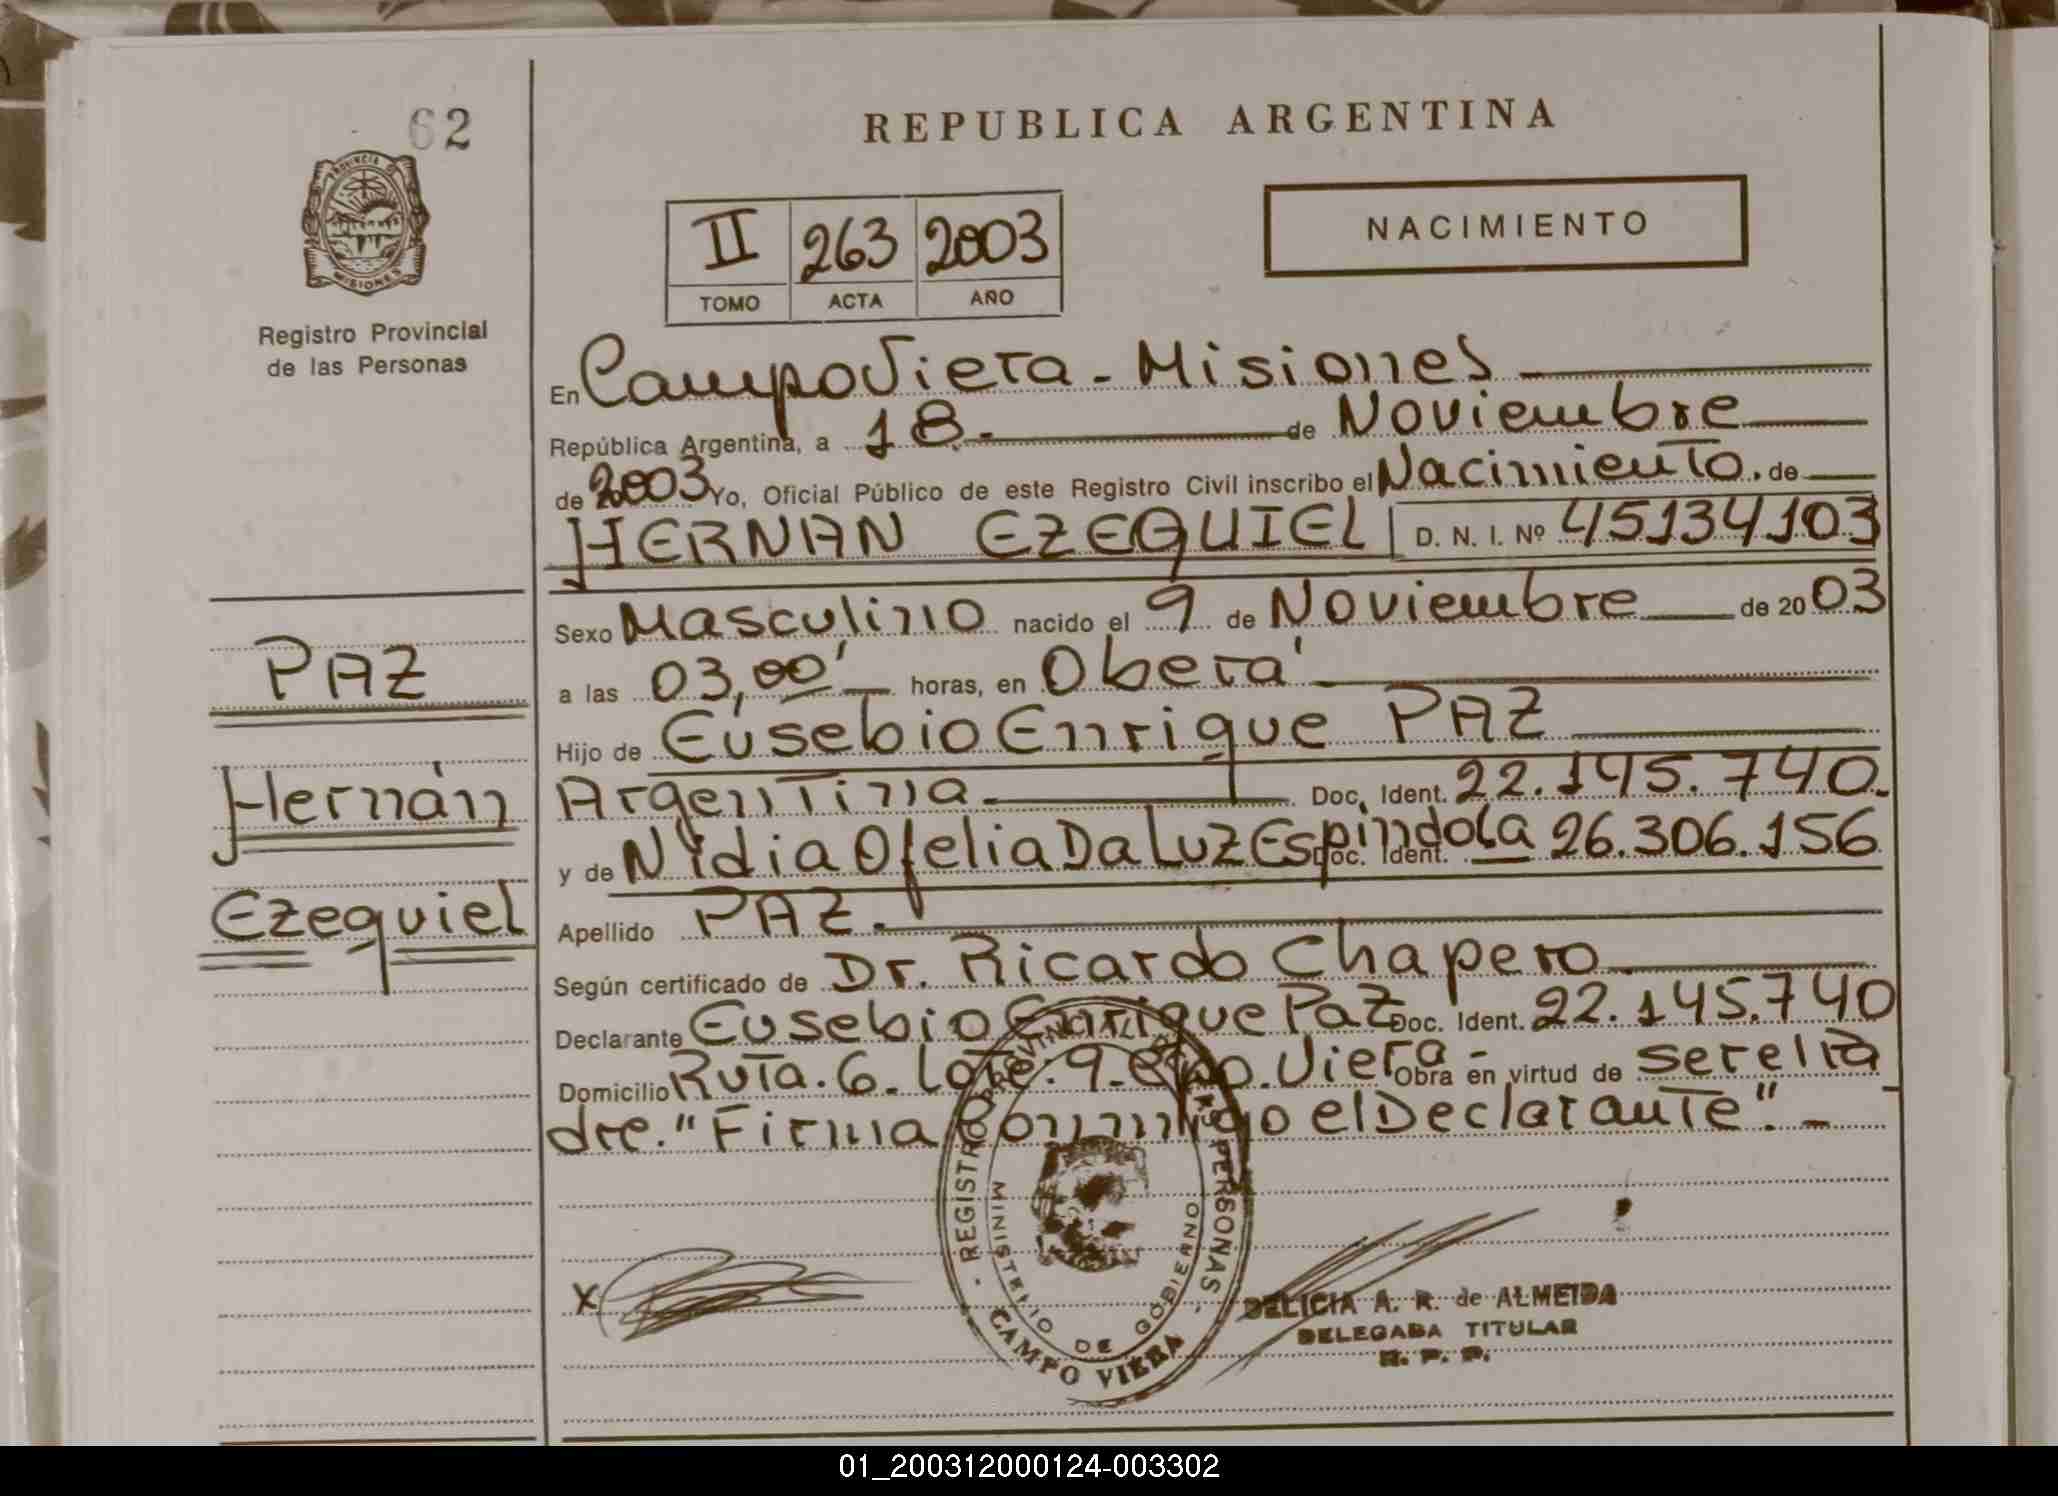 62
PROVINCIA DE
MISIONES
Registro Provincial
de las Personas
PAZ
Hernán
Ezequiel
REPUBLICA ARGENTINA
II 263 2003
TOMO ACTA AÑO
NACIMIENTO
En Campo Viera - Misiones
República Argentina, a 18. de Noviembre
de 2003 Yo, Oficial Público de este Registro Civil inscribo el Nacimiento. de
HERNAN EZEQUIEL D. N. I. Nº 45134103
Sexo Masculino nacido el 9 de Noviembre de 2003
a las 03,00' horas, en Oberá
Hijo de Eusebio Enrique PAZ
Argentina Doc. Ident. 22.145.740.
y de Nidia Ofelia Da Luz Espindola Doc. Ident. 26.306.156
Apellido PAZ.
Según certificado de Dr. Ricardo Chapero
Declarante Eusebio Enrique Paz Doc. Ident. 22.145.740
Domicilio Ruta. 6. Lote. 9. Cpo. Viera - Obra en virtud de ser el Pa
dre. "Firma Conmigo el Declarante". -
REGISTRO PROVINCIAL DE LAS PERSONAS
MINISTERIO DE GOBIERNO
CAMPO VIERA
X
DELICIA A. R. de ALMEIDA
DELEGADA TITULAR
R. P. P.
01_200312000124-003302